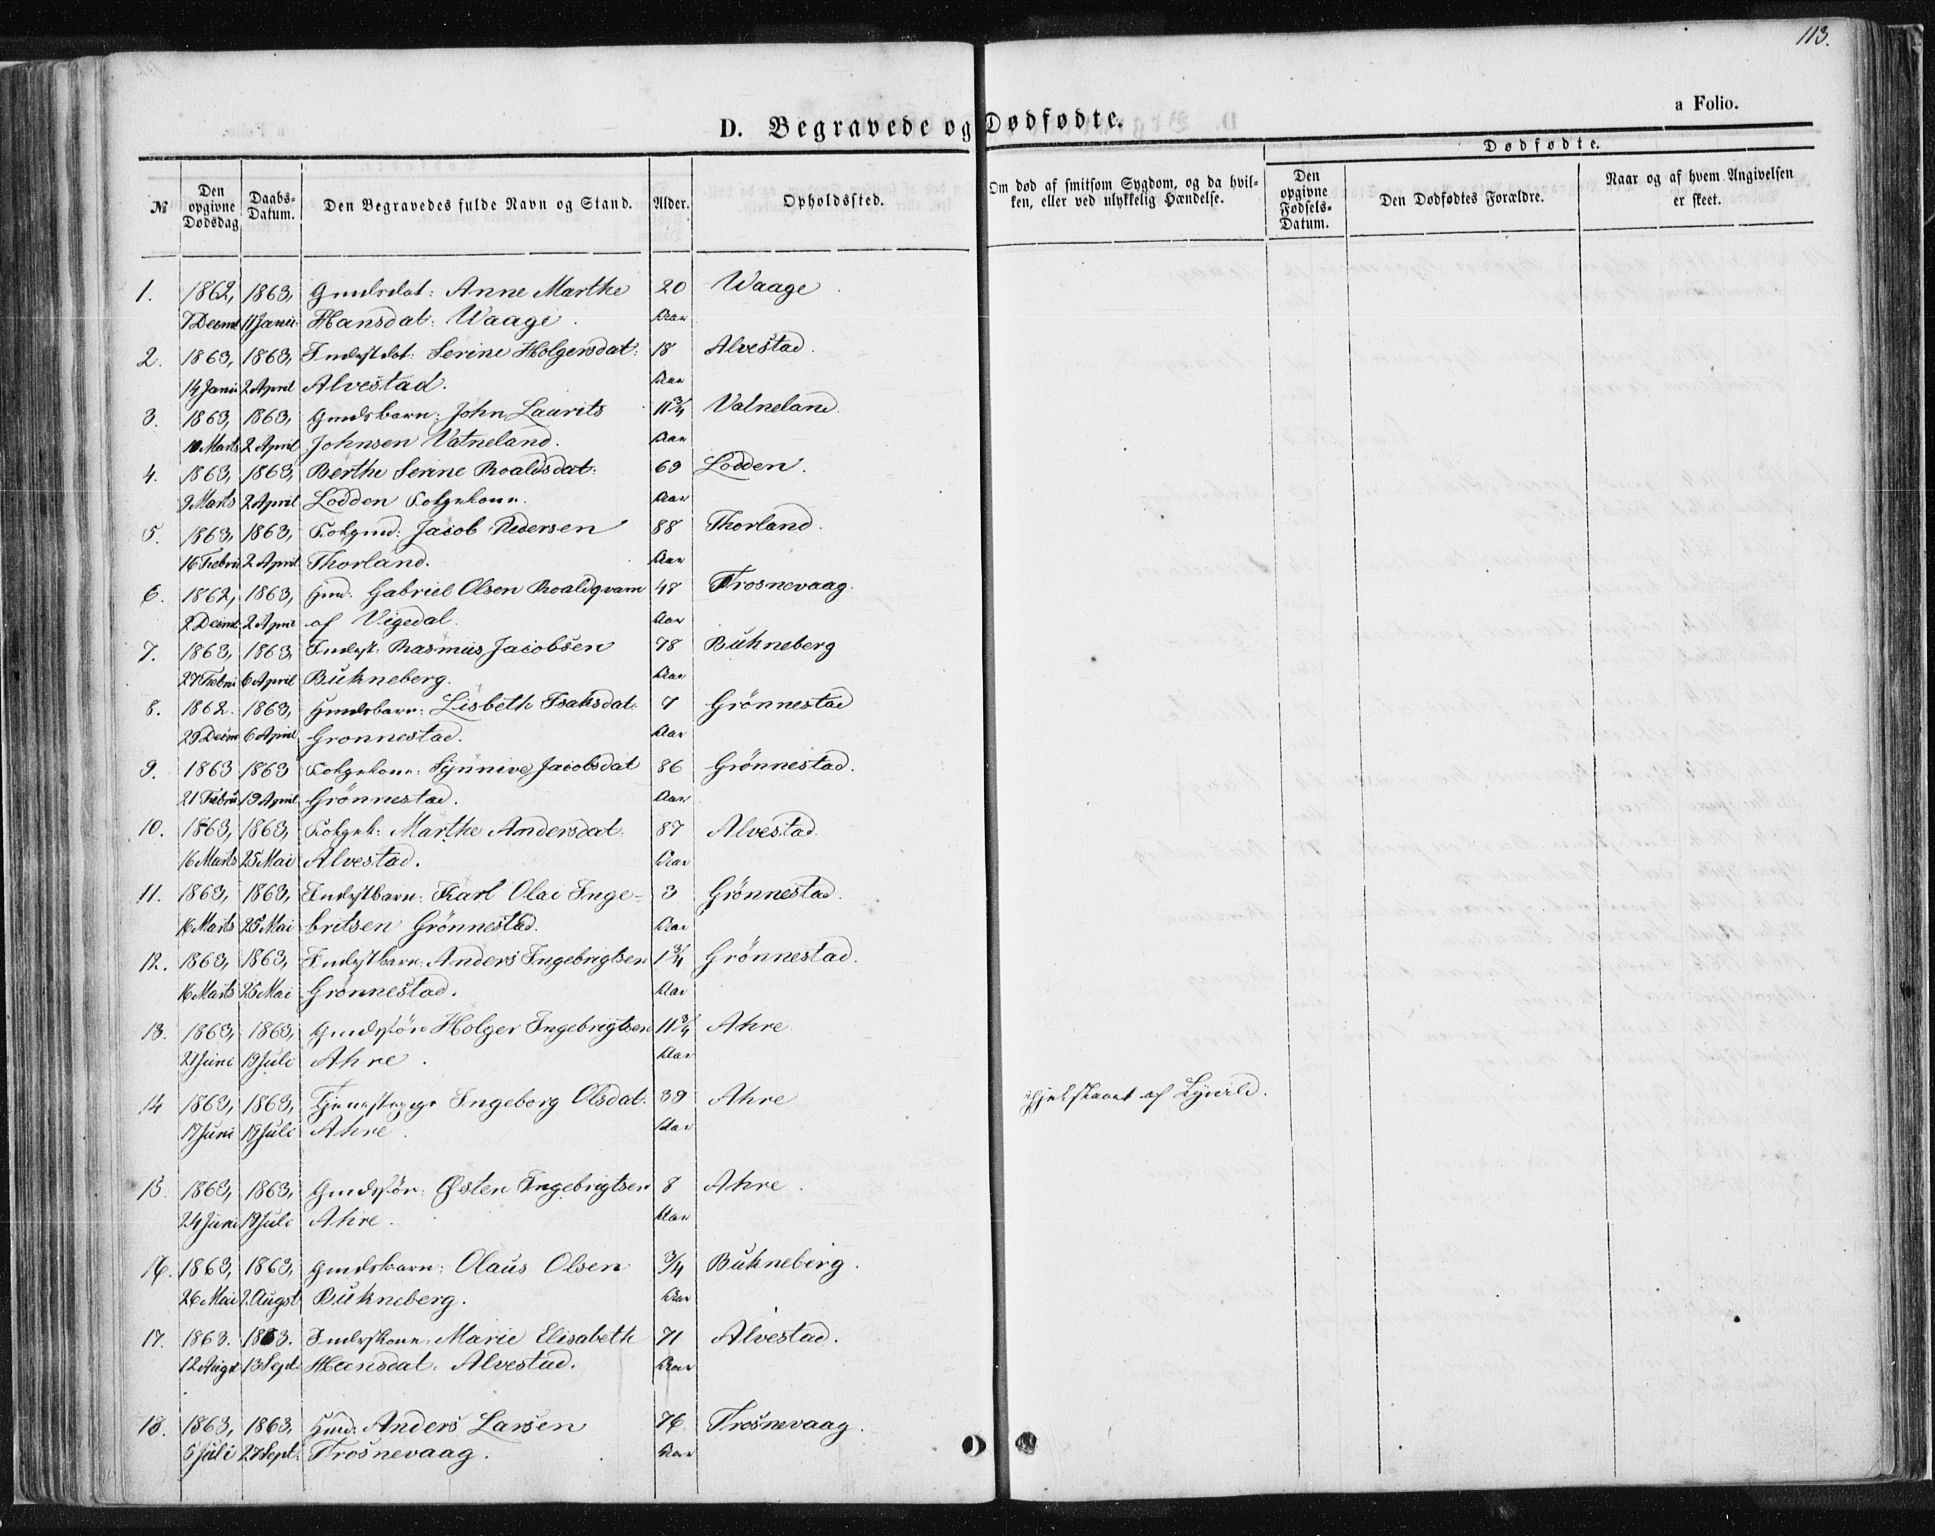 113.
a Folio.
D. Begravede og Dødfødte.
Dødfødte.
№
Den opgivne Dødsdag
Daabs-Datum.
Den Begravedes fulde Navn og Stand.
Alder.
Opholdssted.
Om død af smitsom Sygdom, og da hvil-
ken, eller ved ulykkelig Hændelse.
Den opgivne Fødsels-Datum.
Den Dødfødtes Forældre.
Naar og af hvem Angivelsen
er skeet.
1. 1862, 1863, Gmdsdat: Anne Marthe 20 Waage
7 Decmt 11 Janu: Hansdat: Waage. Aar
2. 1863, 1863, Indstdat: Serine Holgersdat: 18 Alvestad.
14 Janu 2 April Alvestad. Aar
3. 1863, 1863, Gmdsbarn: John Laurits 11 3/4 Vatneland.
10 Marts 2 April Johnsen Vatneland. Aar
4. 1863, 1863, Berthe Serine Roaldsdat: 69 Lodden.
9 Marts 2 April Lodden Folgekone. Aar
5. 1863, 1863, Folgmd: Jacob Pedersen 88 Thorland.
16 Febru 2 April Thorland. Aar
6. 1862, 1863, Hmd: Gabriel Olsen Roaldqvam 48 Trosnevaag.
2 Decmt 2 April af Vigedal. Aar
7. 1863, 1863, Indst: Rasmus Jacobsen 78 Bukneberg
27 Febru 6 April Bukneberg. Aar
8. 1862. 1863, Hmdsbarn: Lisbeth Isaksdat: 7 Grönnestad
29 Decm 6 April Gronnestad. Aar
9. 1863 1863 Folgekone: Synnive Jacobsdat 86 Grönnestad.
21 Febru 19 April Grönnestad. Aar
10. 1863, 1863, Folgek: Marthe Andersdat: 87 Alvestad.
16 Marts 25 Mai Alvestad. Aar
11. 1863, 1863, Indstbarn: Karl Olai Inge- 3 Grönnestad.
16 Marts 25 Mai britsen Grönnestad. Aar
12. 1863, 1863, Indstbarn: Anders Ingebrigtsen 1 3/4 Grönnestad.
16 Marts 25 Mai Grönnestad. Aar
13. 1863, 1863, Gmdssön Holger Ingebrigtsen 11 3/4 Ahre.
21 Juni 19 Juli Ahre. Aar
14 1863, 1863, Tjenestepige Ingeborg Olsdat. 39 Ahre ihjelslaaet af Lynild.
17 Juni 19 Juli Ahre. Aar
15. 1863, 1863, Gmdssön: Østen Ingebrigtsen 8 Ahre.
24 Juni 19 Juli Ahre. Aar
16. 1863, 1863, Gmdsbarn: Olaus Olsen 3/4 Bukneberg.
26 Mai 2 Augst Bukneberg. Aar
17. 1863. 1863. Indstkone: Marie Elisabeth 71 Alvestad.
12 Augst 13 Sept: Hansdat: Alvestad. Aar
18. 1863, 1863, Hmd: Anders Larsen 76 Trosnevaag.
6 Juli 27 Sept: Trosnevaag. Aar